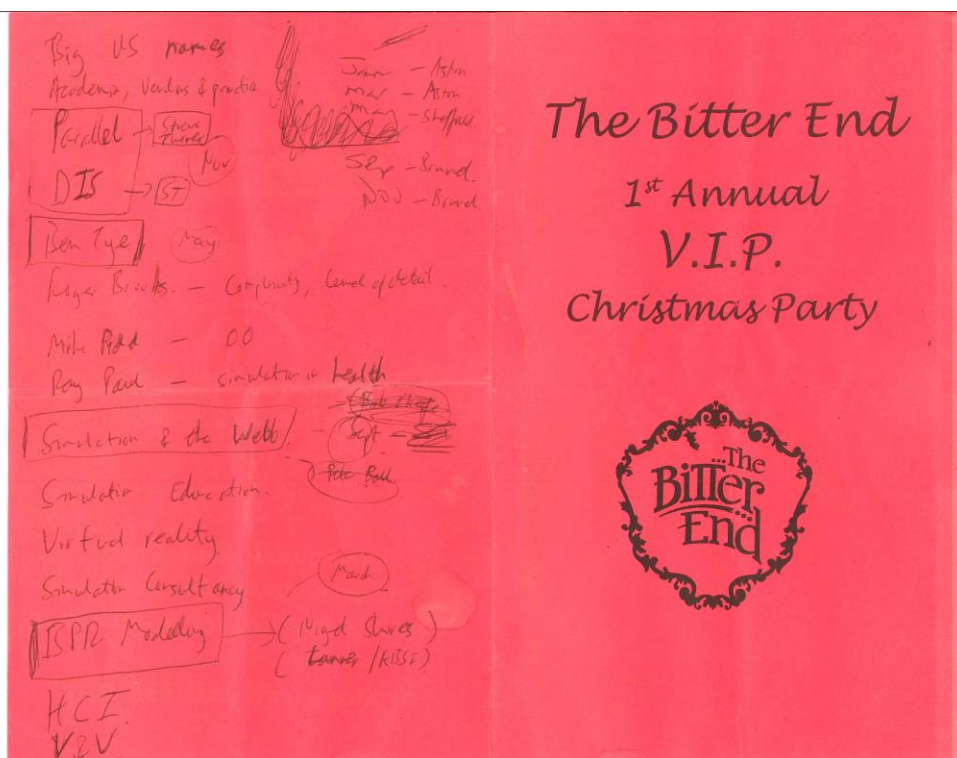 Big US names
Academia, Vendors & practice
Parallel
Steve Turner
Nov
DIS
ST
Jan - Aston
Mar - Aston
May - Sheffield
Sep - Brunel.
Nov - Brunel.
Ben Tye
May
Roger Brooks. - Complexity, level of detail.
Mike Pidd - OO
Ray Paul - simulation in health
Simulation & the Web
Sept -
Simulation Education.
Virtual reality
Simulation Consultancy
March
BPR Modelling
(Nigel Shires)
( /KBSI)
HCI.
V&V
The Bitter End
1st Annual
V.I.P.
Christmas Party
...The
Bitter
End...